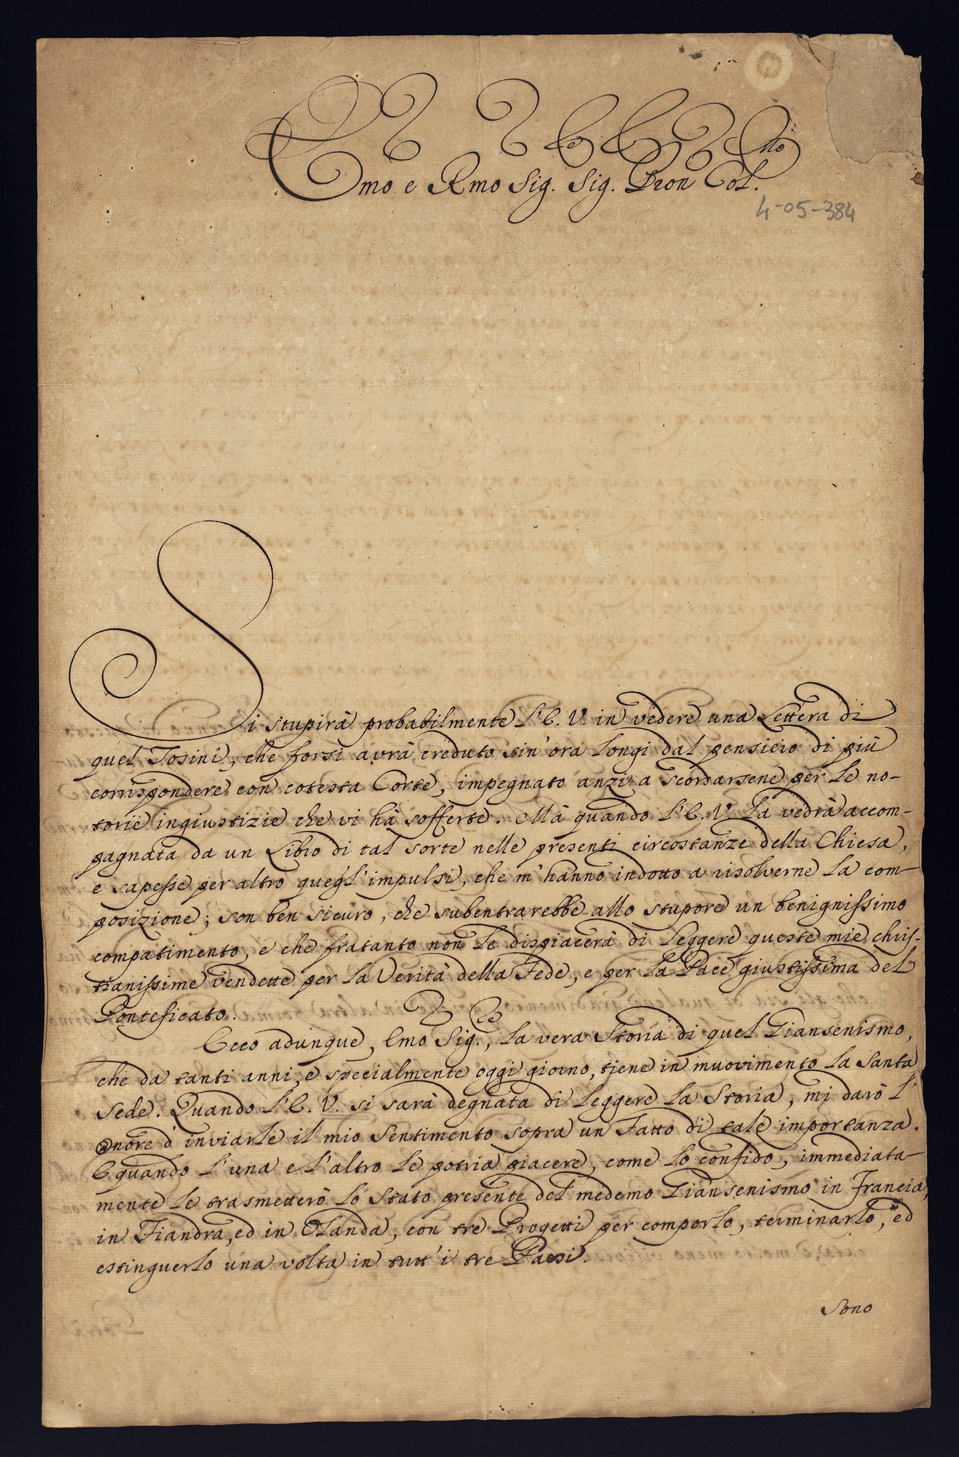 Emo e Rmo Sig. Sig. Pron Col.mo
4-05-384
Si stupirà probabilmente l'E. V. in vedere una Lettera di
quel Tosini, che forsi avrà creduto sin'ora longi dal pensicio di più
corrispondere con cotesta Corte, impegnato anzi a scordarsene per le no-
torie ingiustizie che vi hà sofferte. Mà quando l'E. V. la vedrà accom-
pagnata da un Libro di tal sorte nelle presenti circostanze della Chiesa,
e sapesse per altro quegl'impulsi, che m'hanno indotto a risolverne la com-
posizione; son ben sicuro, che subentrarebbe allo stupore un benignissimo
compatimento, e che fratanto non le dispiacerà di leggere queste mie chris-
tianissime vendette per la Verità della Fede, e per la Pace giustissima del
Ponteficato.
Ecco adunque, Emo Sig., la vera Storia di quel Giansenismo,
che da tanti anni, e specialmente oggi giorno, tiene in muovimento la Santa
Sede. Quando l'E. V. si sarà degnata di leggere la Storia, mi darò l'
onore d'inviarle il mio sentimento sopra un Fatto di tale importanza.
E quando l'una e l'altro le potria piacere, come lo confido, immediata-
mente le trasmetterò lo Stato presente del medemo Giansenismo in Francia,
in Fiandra, ed in Olanda, con tre Progetti per comporlo, terminarlo, ed
estinguerlo una volta in tutt'i tre Paesi.
Sono